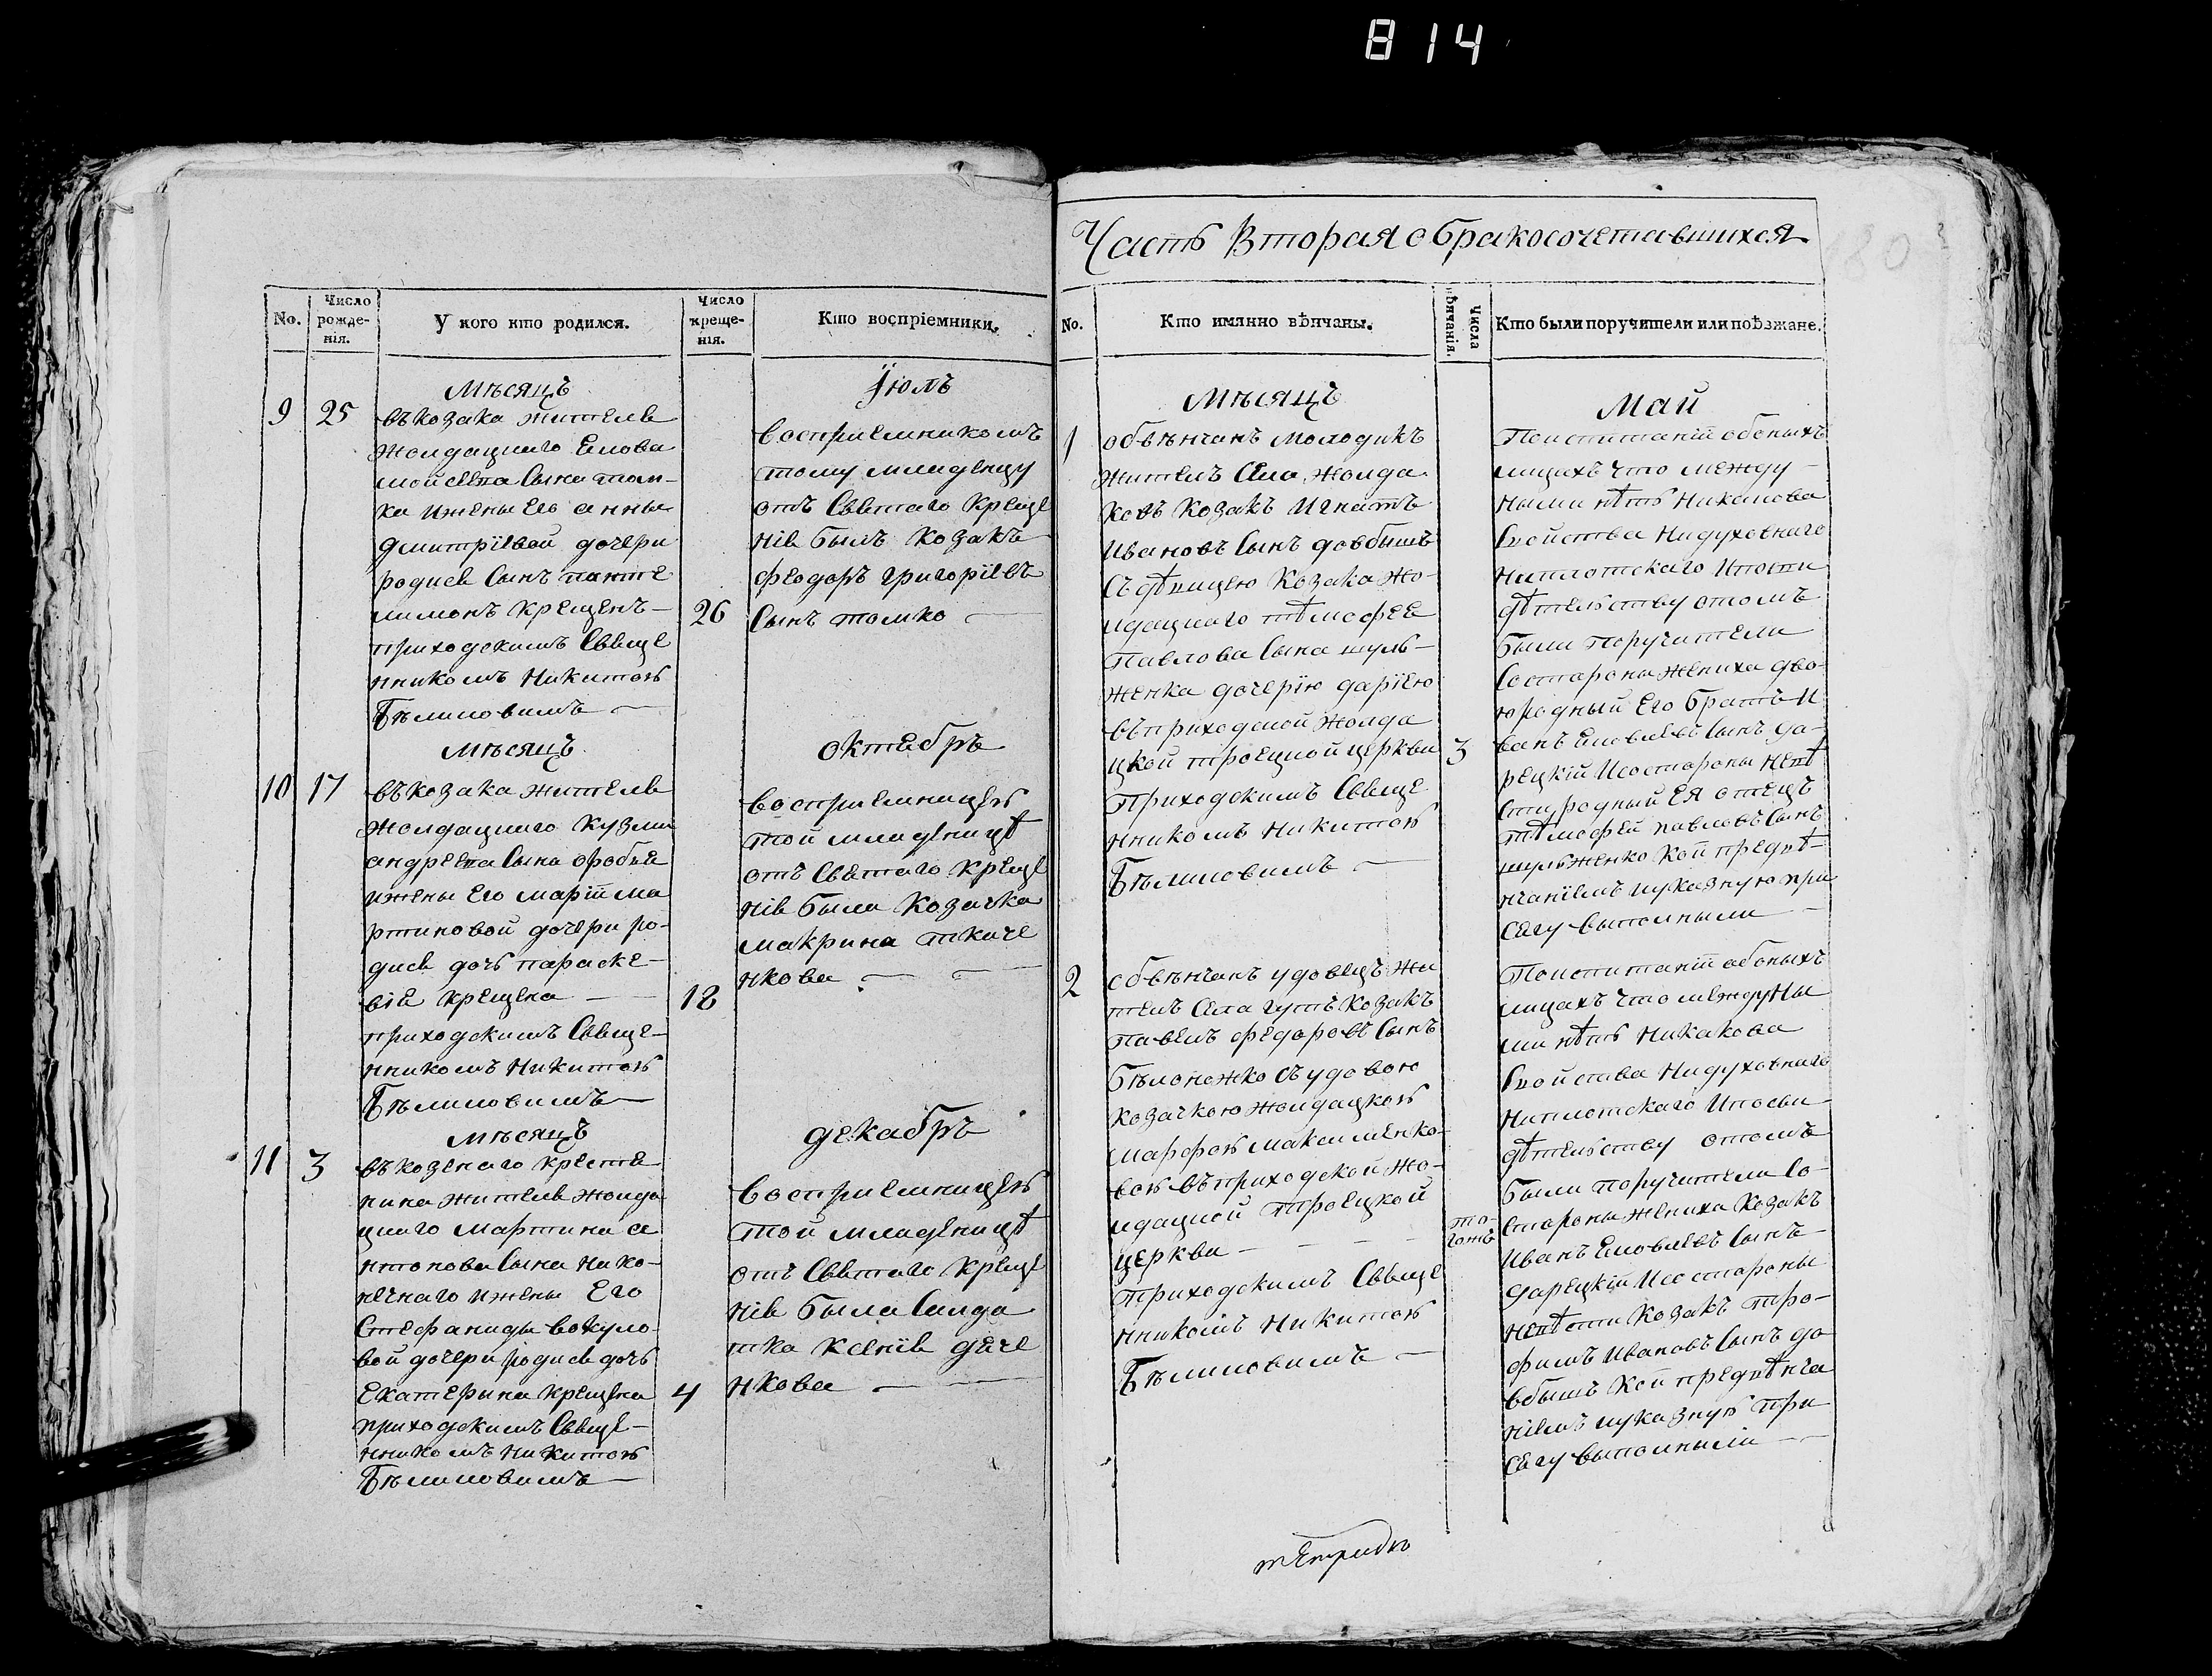 814
No.
Число рожде-нія.
У кого кто родился.
Число креще-нія.
Кто воспріемники.
Мѣсяцъ
Іюль
9 25
въ козака жителя
жолдацкаго Елова
мойсеева Сына том-
ка ижены Его анны
Дмитріевой дочери
родися Сынъ панте
лимонъ крещенъ—
приходскимъ Свяще
нникомъ Никитою
Бѣлиловимъ —
26
воспріемникомъ
тому младенцу
отъ Святаго Креще
нія былъ козакъ
феодоръ григоріевъ
Сынъ томко —
Мѣсяцъ
октябрь
10 17
въ козака жителя
жолдацкаго Кузми
андреева Сына
ижены Его маріи ма
ртиновой дочери ро-
дися дочь параске-
вія крещена —
приходскимъ Свяще-
нникомъ Никитою
Бѣлиловимъ —
18
воспріемницею
той младеницѣ
отъ Святаго Креще
нія была Козачка
макрина ткаче
нкова — —
Мѣсяцъ
декабрь
11 3
въ козенаго крестя
нина жителя жолда
цкаго мартина а
нтонова Сына нико-
нечнаго ижены Его
Стефаниды вокуло
вой дочери родися дочь
Екатерына крещена
приходскимъ Свяще-
нникомъ никитою
Бѣлиловимъ —
4
воспріемницею
той младеницѣ
отъ Святаго Креще
нія была Салда
тка Ксенія дяче
нкова — —
Часть Вторая о бракосочетавшихся
No.
Кто имянно вѣнчаны.
Числа вѣнчанія.
Кто были поручители или поѣзжане.
Мѣсяцъ
Май
1
обвѣнчанъ молодикъ
житель Села Жолда
ковъ козакъ Игнатъ
Ивановъ Сынъ довбишъ
Съ дѣвицею Козака Жо-
лдацкаго тѣмофея
Павлова Сына шуль—
женка дочерію даріею
въ приходской жолда
цкой троецкой церкви
приходскимъ Свяще
нникомъ Никитою
Бѣлиловимъ —
3
Поиспитаніи обоныхъ
лицахъ что между—
ными нѣтъ Никакова
Свойства Нидуховнаго
Ниплотскаго Ипосви
дѣтельству отомъ
были поручители
Состороны жениха дво-
юродный Его братъ И
ванъ Еловлевъ Сынъ да-
рецкій Исостороны невѣ
сты родный ЕЯ отецъ
тѣмофей павловъ Сынъ
шульженко Кои предвѣ-
нчаніемъ иуказную при
сягу выполныли —
2
обвѣнчанъ удовецъ жи
тель Села гутъ козакъ
павелъ федоровъ Сынъ
Бѣлоножко съ удовою
козачкою жолдацкою
марфою максименко-
вою въ приходской жо-
лдацкой троецкой
церкви — — — —
приходскимъ Свяще
нникомъ Никитою
Бѣлиловимъ —
то-
гожъ
Поиспитаніи обоныхъ
лицахъ что междуНы
ми нѣтъ Никакова
Свойства Нидуховнаго
Ниплотскаго Ипосви
дѣтельству отомъ
были поручители Со-
стороны жениха козакъ
Иванъ Еловлевъ Сынъ—
дарецкій Исостороны
невѣсти козакъ тро-
фимъ Ивановъ Сынъ до
вбышъ Кои предвѣнча
ніемъ иуказную при
сягу выполныли —